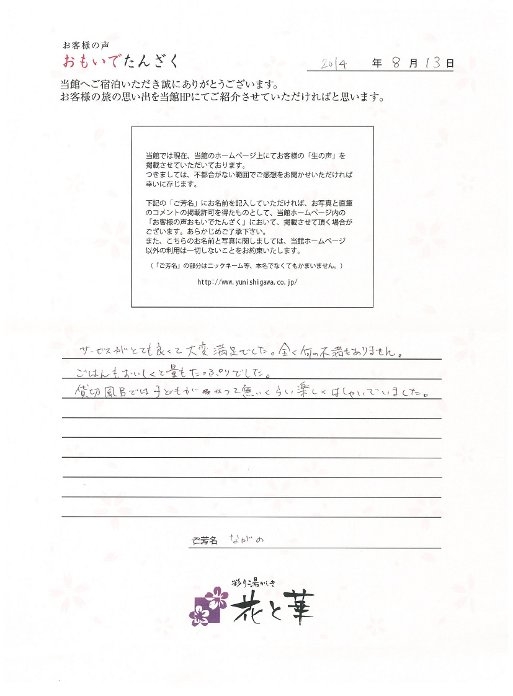 お客様の声
おもいでたんざく
2014 年 8 月 13 日
当館へご宿泊いただき誠にありがとうございます。
お客様の旅の思い出を当館HPにてご紹介させていただければと思います。
当館では現在、当館のホームページ上にてお客様の「生の声」を
掲載させていただいております。
つきましては、不都合がない範囲でご感想をお聞かせいただければ
幸いに存じます。
下記の「ご芳名」にお名前を記入していただければ、お写真と直筆
のコメントの掲載許可を得たものとして、当館ホームページ内の
「お客様の声おもいでたんざく」において、掲載させて頂く場合が
ございます。あらかじめご了承下さい。
また、こちらのお名前と写真に関しましては、当館ホームページ
以外の利用は一切しないことをお約束いたします。
（「ご芳名」の部分はニックネーム等、本名でなくてもかまいません。）
http://www.yunishigawa.co.jp/
サービスがとても良くて大変満足でした。全く何の不満もありません。
ごはんもおいしくて量もたっぷりでした。
貸切風呂では子どもが
くらい楽しくはしゃいでいました。
ご芳名 ながの
彩り湯かしき
花と華